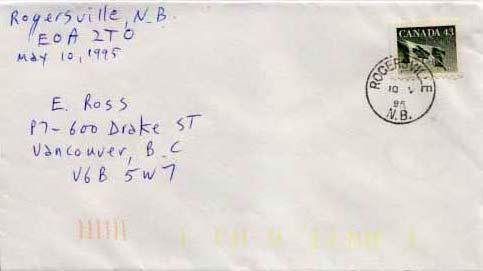 Rogersville, N.B.
E0A 2T0
May 10, 1995
CANADA 43
ROGERSVILLE
10 V
95
N.B.
E. Ross
P7-600 Drake ST
Vancouver, B.C
V6B 5W7